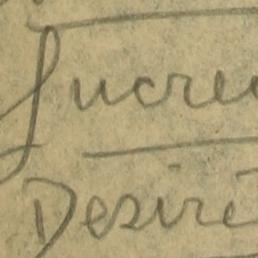 Lucre
Desiré